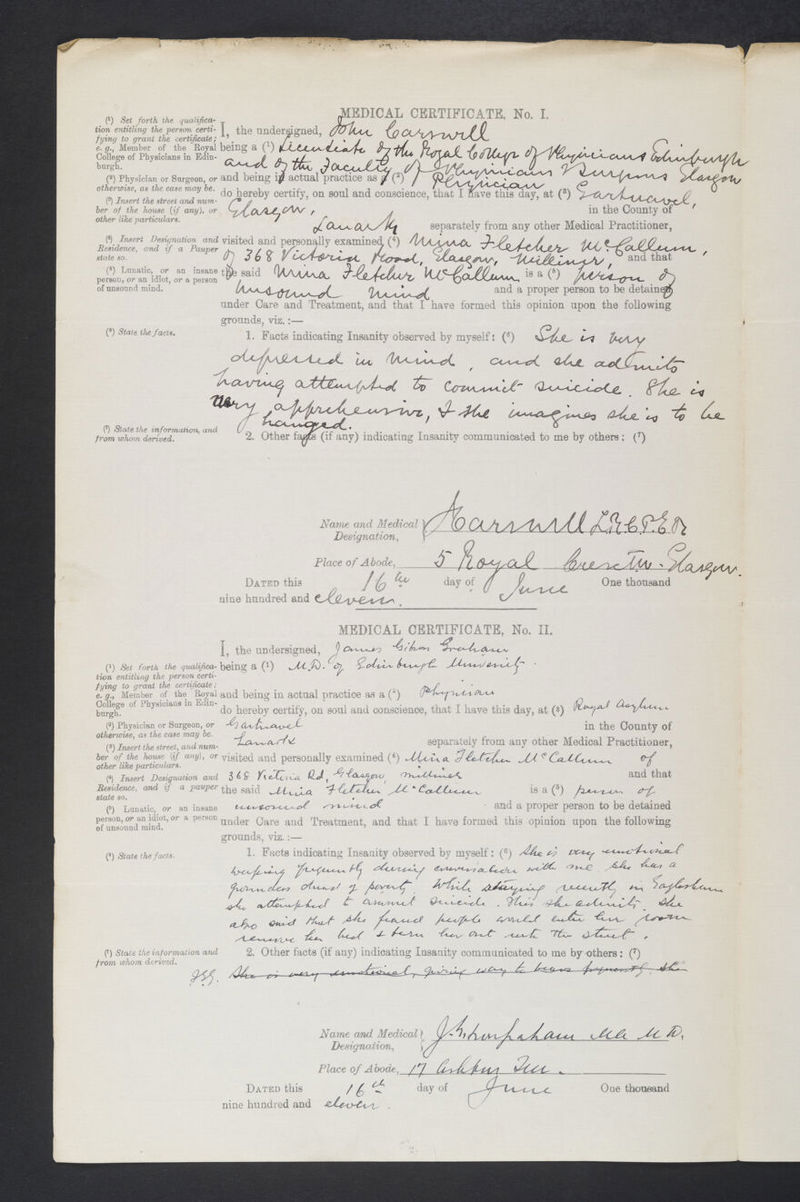 MEDICAL CERTIFICATE, No. I.
(¹) Set forth the qualifica-
tion entitling the person certi-
fying to grant the certificate;
e. g., Member of the Royal
College of Physicians in Edin-
burgh.
I, the undersigned, John Carswell
being a (¹) Licentiate of the Royal College of Physicians Edinburgh
and of the Faculty of Physicians & Surgeons Glasgow
(²) Physician or Surgeon, or
otherwise, as the case may be.
and being in actual practice as a (²) Physician
do hereby certify, on soul and conscience, that I have this day, at (³) Gartnavel,
(³) Insert the street and num-
ber of the house (if any), or
other like particulars.
Glasgow, in the County of
Lanark separately from any other Medical Practitioner,
(⁴) Insert Designation and
Residence, and if a Pauper
state so.
visited and personally examined (⁴) Mina Fletcher McCallum,
of 368 Victoria Road, Glasgow, Milliner, and that
(⁵) Lunatic, or an insane
person, or an idiot, or a person
of unsound mind.
the said Mina Fletcher McCallum is a (⁵) person of
unsound mind and a proper person to be detained
under Care and Treatment, and that I have formed this opinion upon the following
grounds, viz.:—
(⁶) State the facts.
1. Facts indicating Insanity observed by myself: (⁶) She is very
depressed in mind, and she admits
having attempted to commit suicide. She is
very apprehensive, & she imagines she is to be
hanged.
(⁷) State the information, and
from whom derived.
2. Other facts (if any) indicating Insanity communicated to me by others: (⁷)
Name and Medical Designation, J Carswell L.R.C.P.Ed
Place of Abode, 5 Royal Crescent W. Glasgow.
DATED this 16th day of June One thousand
nine hundred and eleven.
MEDICAL CERTIFICATE, No. II.
I, the undersigned, James Gibson Graham
(¹) Set forth the qualifica-
tion entitling the person certi-
fying to grant the certificate;
e. g., Member of the Royal
College of Physicians in Edin-
burgh.
being a (¹) M.D. of Edinburgh University.
and being in actual practice as a (²) Physician
do hereby certify, on soul and conscience, that I have this day, at (³) Royal Asylum
(²) Physician or Surgeon, or
otherwise, as the case may be.
Gartnavel in the County of
(³) Insert the street, and num-
ber of the house (if any), or
other like particulars.
Lanark separately from any other Medical Practitioner,
visited and personally examined (⁴) Mina Fletcher McCallum of
(⁴) Insert Designation and
Residence, and if a pauper
state so.
368 Victoria Rd, Glasgow, milliner and that
the said Mina Fletcher McCallum is a (⁵) person of
(⁵) Lunatic, or an insane
person, or an idiot, or a person
of unsound mind.
unsound mind and a proper person to be detained
under Care and Treatment, and that I have formed this opinion upon the following
grounds, viz.:—
(⁶) State the facts.
1. Facts indicating Insanity observed by myself: (⁶) She is very emotional
weeping frequently during conversation with me. She has a
groundless dread of poverty. While staying recently in Eaglesham
she attempted to commit suicide. This she admits. She
also said that she feared people would enter her room
remove her bed & turn her out into the street.
(⁷) State the information and
from whom derived.
2. Other facts (if any) indicating Insanity communicated to me by others: (⁷)
JGG. She is very emotional, giving way to tears frequently. She
Name and Medical Designation, M.D.
Place of Abode, 17 Ashton Terr.
DATED this 16th day of June One thousand
nine hundred and eleven.